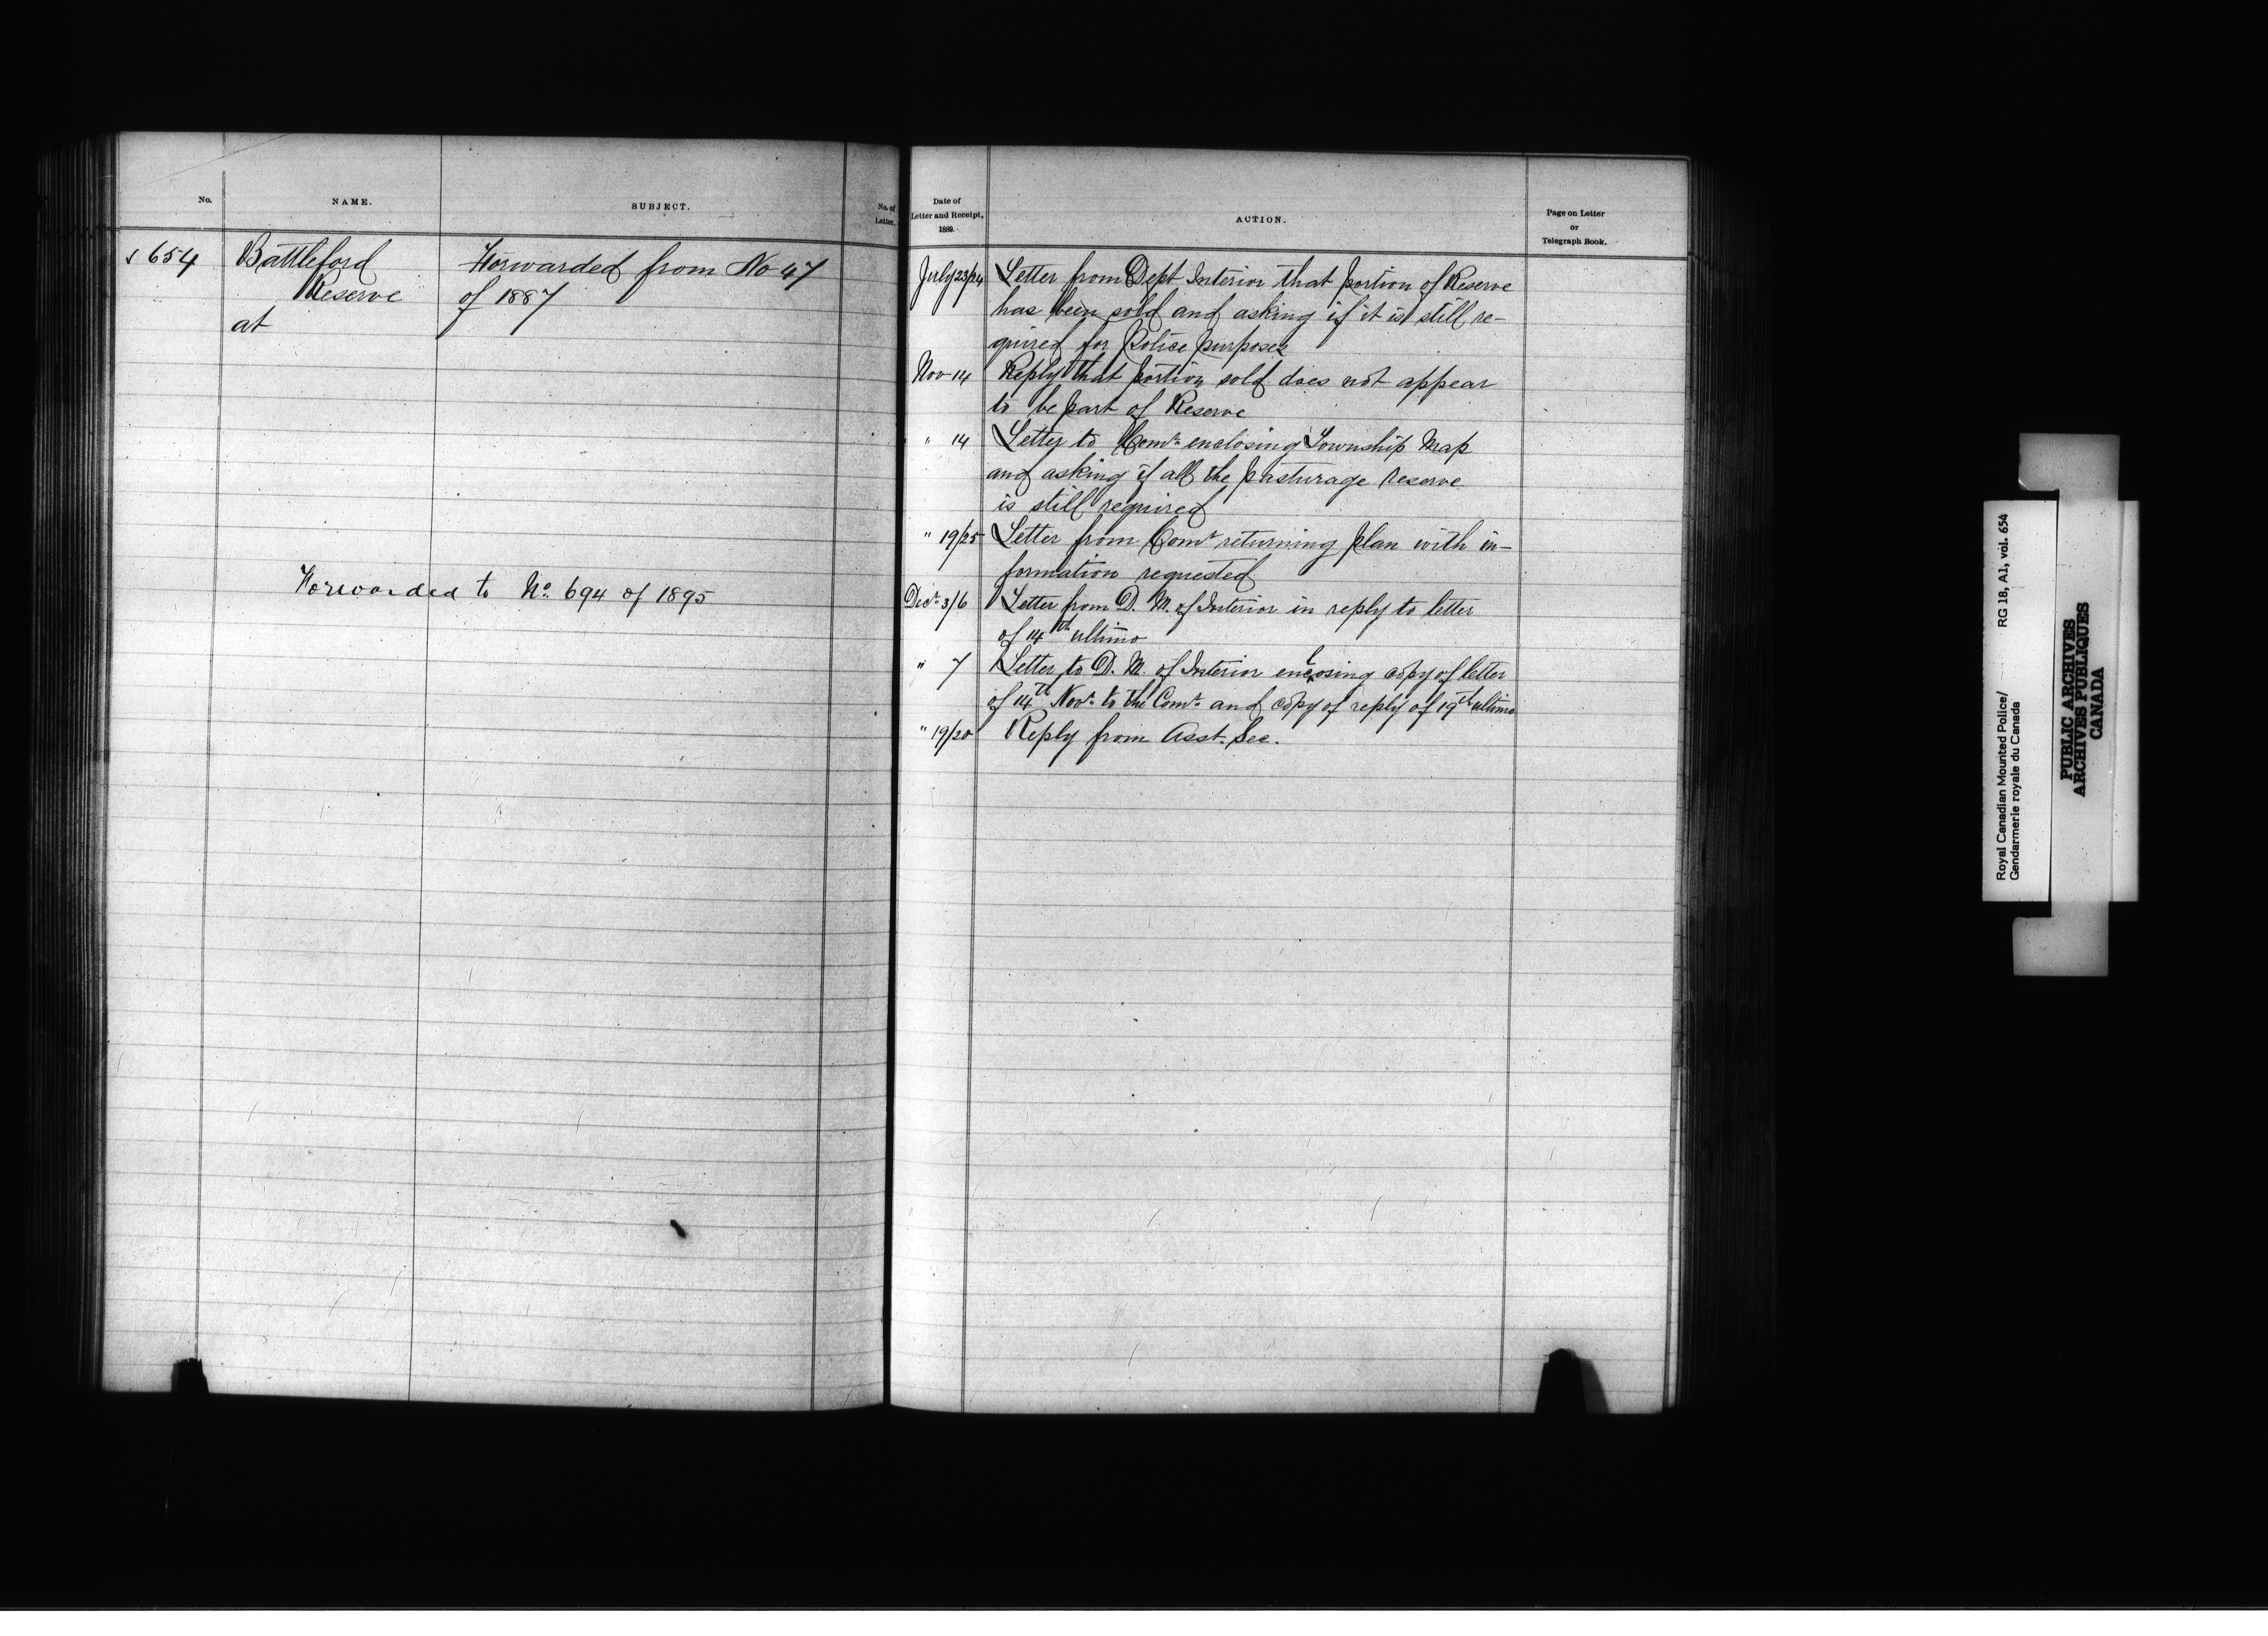 No.
NAME.
SUBJECT.
No. of
Letter.
√ 654
Battleford
Reserve
at
Forwarded from No 47
of 1887
Forwarded to No. 694 of 1895
Date of
Letter and Receipt,
1889.
ACTION.
Page on Letter
or
Telegraph Book.
July 23/24 Letter from Dept Interior that portion of Reserve
has been sold and asking if it is still re-
quired for Police purposes
Nov 14 Reply that portion sold does not appear
to be part of Reserve
" 14 Letter to Comr. enclosing Township Map
and asking if all the pasturage reserve
is still required
" 19/25 Letter from Comr. returning plan with in-
formation requested
Decr. 3/6 Letter from D. M. of Interior in reply to letter
of 14th ultimo
" 7 Letter to D. M. of Interior enclosing copy of letter
of 14th Novr. to the Comr. and copy of reply of 19th ultimo
" 19/20 Reply from Asst. Sec.
Royal Canadian Mounted Police/ RG 18, A1, vol. 654
Gendarmerie royale du Canada
PUBLIC ARCHIVES
ARCHIVES PUBLIQUES
CANADA